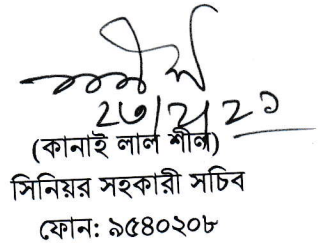 (কানাই লাল শীল)
সিনিয়র সহকারী সচিব
ফোন: ৯৫৪০২০৮